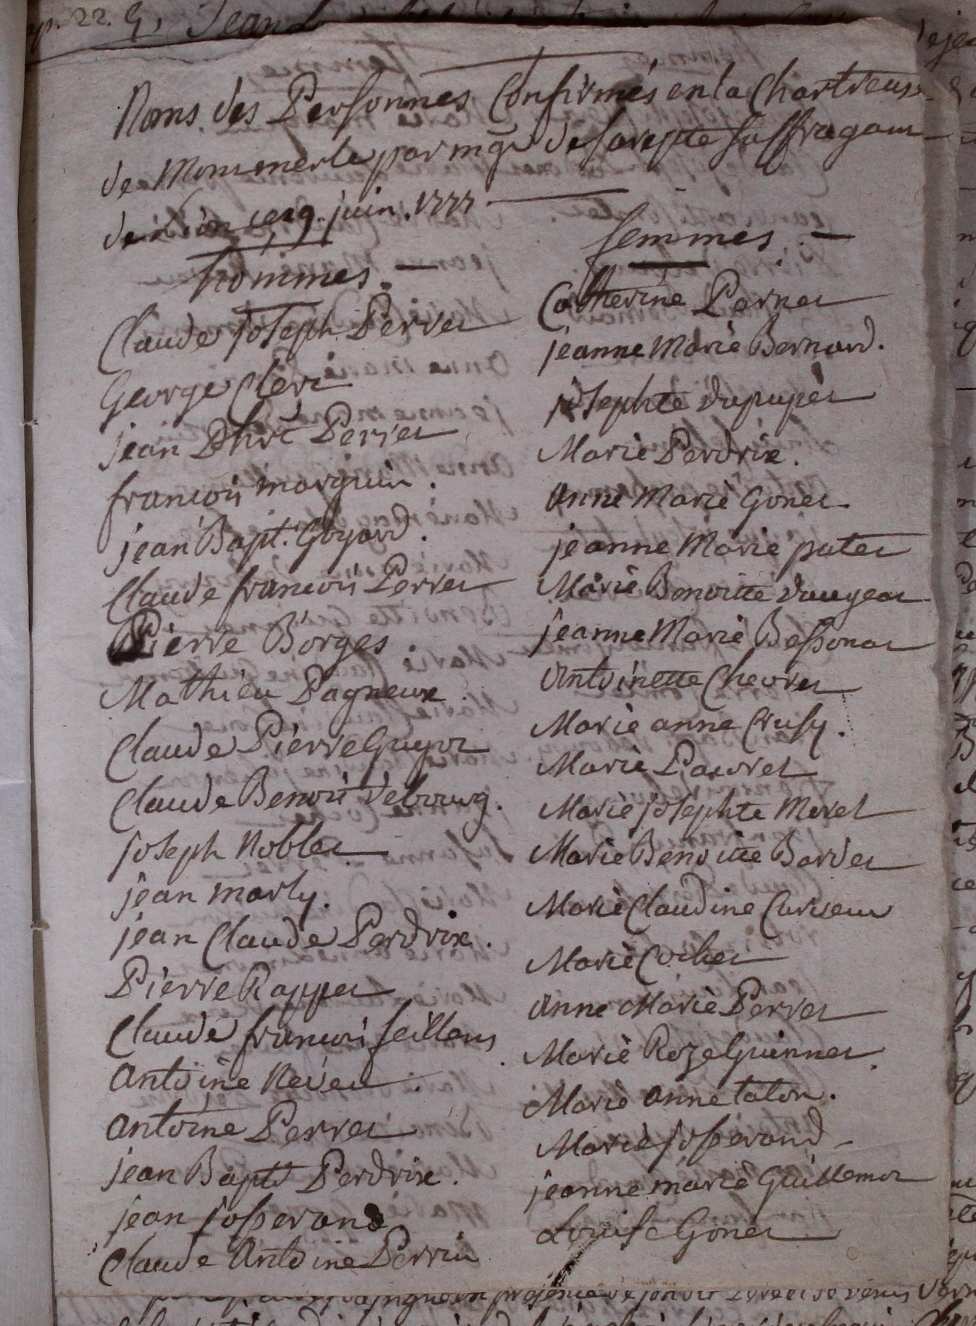 Noms des Personnes Confirmés en la Chartreuse
de Mommerle par mgr de sarepte suffragant
de Lion le 19. juin. 1777
hommes.
Claude joseph Perret
George Cleri
jean Perret
françois marguin.
jean Bapt. Goyard.
Claude françois Perret
Pierre Borges
Mathieu Pagneux
Claude Pierre Guyot
Claude Benoit debourg.
joseph Noblet
jean marly.
jean Claude Perdrix.
Pierre Rappet
Claude françois feillens
antoine Neveu
antoine Perret
jean Bapt Perdrix.
jean josserand
Claude Antoine Perrin
femmes.
Catherine Parnet
jeanne Marie Bernard.
josephte dupupet
Marie Perdrix.
anne Marie Gonet
jeanne Marie putet
Marie Benoitte
jeanne Marie Bessonat
antoinette Chevret
Marie anne Crusy.
Marie Pauret
Marie josephte Morel
Marie Benoitte Bardet
Marie Claudine Curveur
Marie Cochet
anne Marie Perret
Marie Roze Guinnet
Marie anne talon.
Marie josserand
jeanne marie Guillemot
Louise Gonet